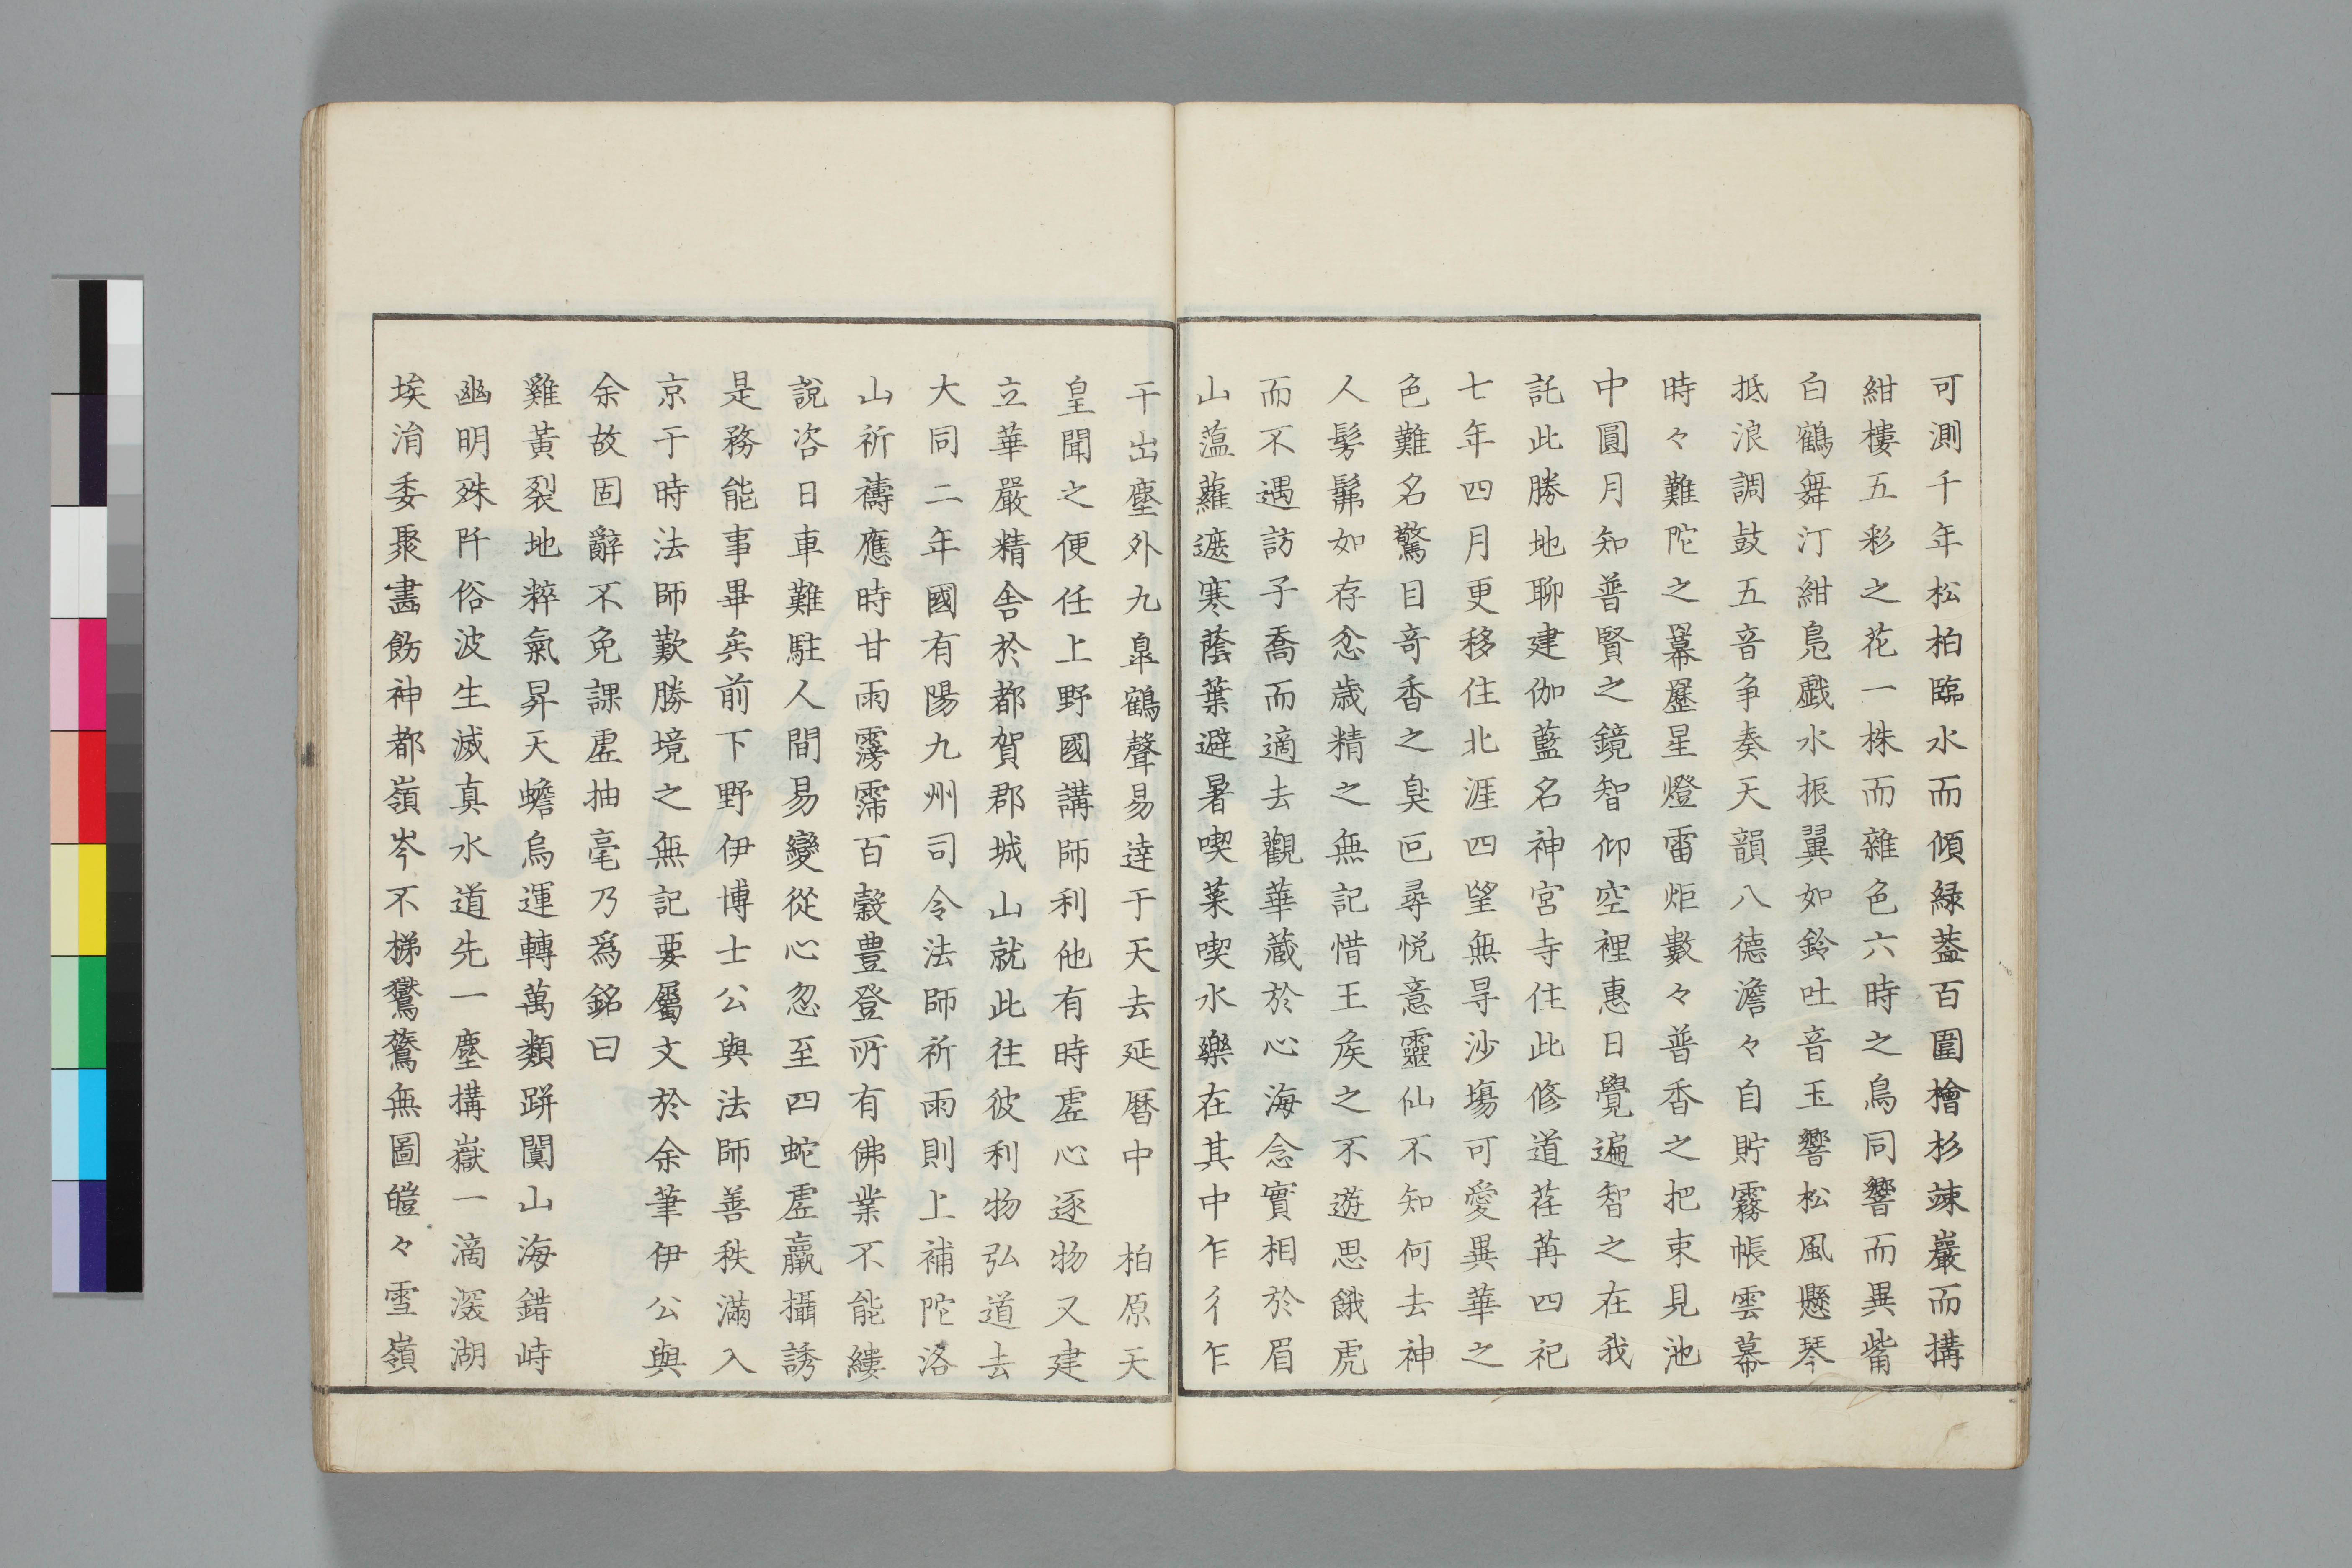 可測千年松柏臨水而傾緑葢百圍檜杉竦巖而搆
紺樓五彩之花一株而雜色六時之鳥同響而異觜
白鶴舞汀紺鳧戯水振翼如鈴吐音玉響松風懸琴
抵浪調鼓五音争奏天韻八德澹々自貯霧帳雲幕
時々難陀之羃䍥星燈雷炬數々普香之把束見池
中圓月知普賢之鏡智仰空裡惠日覺遍智之在我
託此勝地聊建伽藍名神宮寺住此修道荏苒四祀
七年四月更移住北涯四望無㝵沙塲可愛異華之
色難名驚目竒香之臭叵尋悦意靈仙不知何去神
人髣髴如存忿歳精之無記惜王矦之不遊思餓虎
而不遇訪子喬而適去觀華蔵於心海念實相於眉
山薀蘿遮寒蔭葉避暑喫菜喫水樂在其中乍彳乍
亍出塵外九皐鶴聲易達于天去延暦中 柏原天
皇聞之便任上野國講師利他有時虛心逐物又建
立華嚴精舎於都賀郡城山就此往彼利物弘道去
大同二年國有陽九州司令法師祈雨則上補陀洛
山祈禱應時甘雨霶霈百穀豊登所有佛業不能縷
說咨日車難駐人間易變從心忽至四蛇虛羸攝誘
是務能事畢矣前下野伊博士公與法師善秩滿入
京于時法師歎勝境之無記要屬文於余筆伊公與
余故固辭不免課虛抽毫乃爲銘曰
雞黃裂地粹氣昇天蟾烏運轉萬類跰闐山海錯峙
幽明殊阡俗波生滅真水道先一塵搆嶽一滴深湖
埃涓委聚畵飭神都嶺岑不梯鸑鷟無圖皚々雪嶺